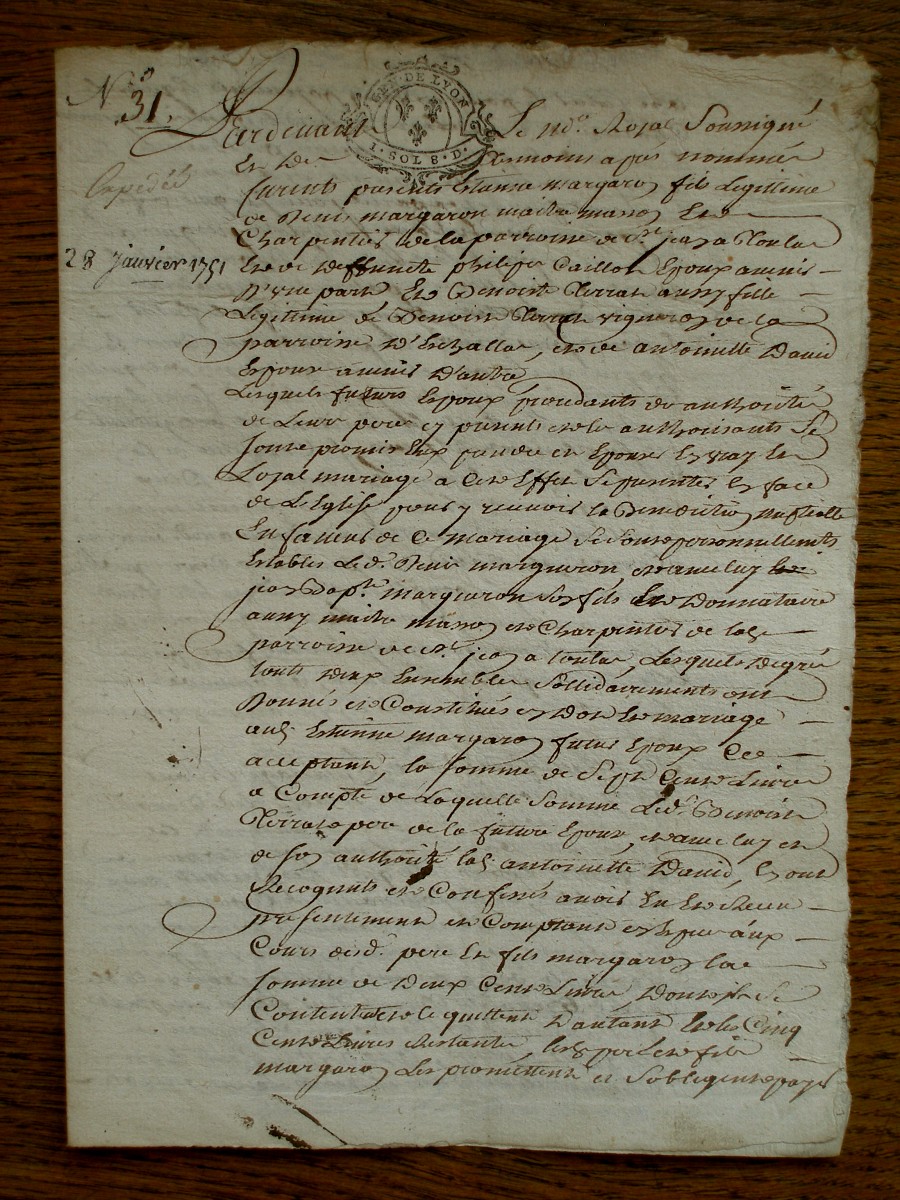 N.o 31.
GEN. DE LYON
1. SOL 8. D.
Expedié
28 janvier 1751
Pardevant Le no.re Royal Soussigné
Et Les temoins apres nommés
furent presents Estienne margaron fils Legittime
de Denis margaron maitre masson Et
Charpentier de la parroisse de St jean a Toulas
Et de deffuncte philippe Caillon Epoux a venir
D'une part Et Benoiste Terrat aussy fille
Legitime de Benoist Terrat vigneron de la
parroisse D'Echallas, et de antoinette David
Epouse a venir D'autre
Lesquels futurs Epoux procedants de authorité
de Leurs pere cy presents et les authorisants Se
sont promis Eux prendre en Epoux Et vray Et
Loyal mariage a Cet Effet Se presenter En face
de L'Eglise pour y recevoir la Benediction nuptialle
En faveur de Ce mariage Se Sont personnellement
Establis Led. Denis margueron et avec luy
jean Bapt. margueron son fils Et Donnataire
aussy maitre masson et Charpentier de lad.
parroisse de St. jean a toulas, Lesquels De gré
touts Deux Ensemble Sollidairement ont
Donnés et Constitués en Dot Et mariage
aud. Estienne margaron futur Epoux Ce
acceptant, la somme de Sept Cent Livres
a Compte de Laquelle Somme Led. Benoist
Terrat pere de la future Epouse, et avec luy et
de son authorité lad. antoinette David, Ont
Recognus et Confessés avoir Eu Et Receu
presentement et Comptant En Espece aux
Cours desd. pere Et fils margaron la
somme de Deux Cent Livres Dont ils Se
Contentent et le quittent D'autant Et les Cinq
Cent Livres Restante, lesd. pere Et fils
margaron Les promettent et S'obligent payer